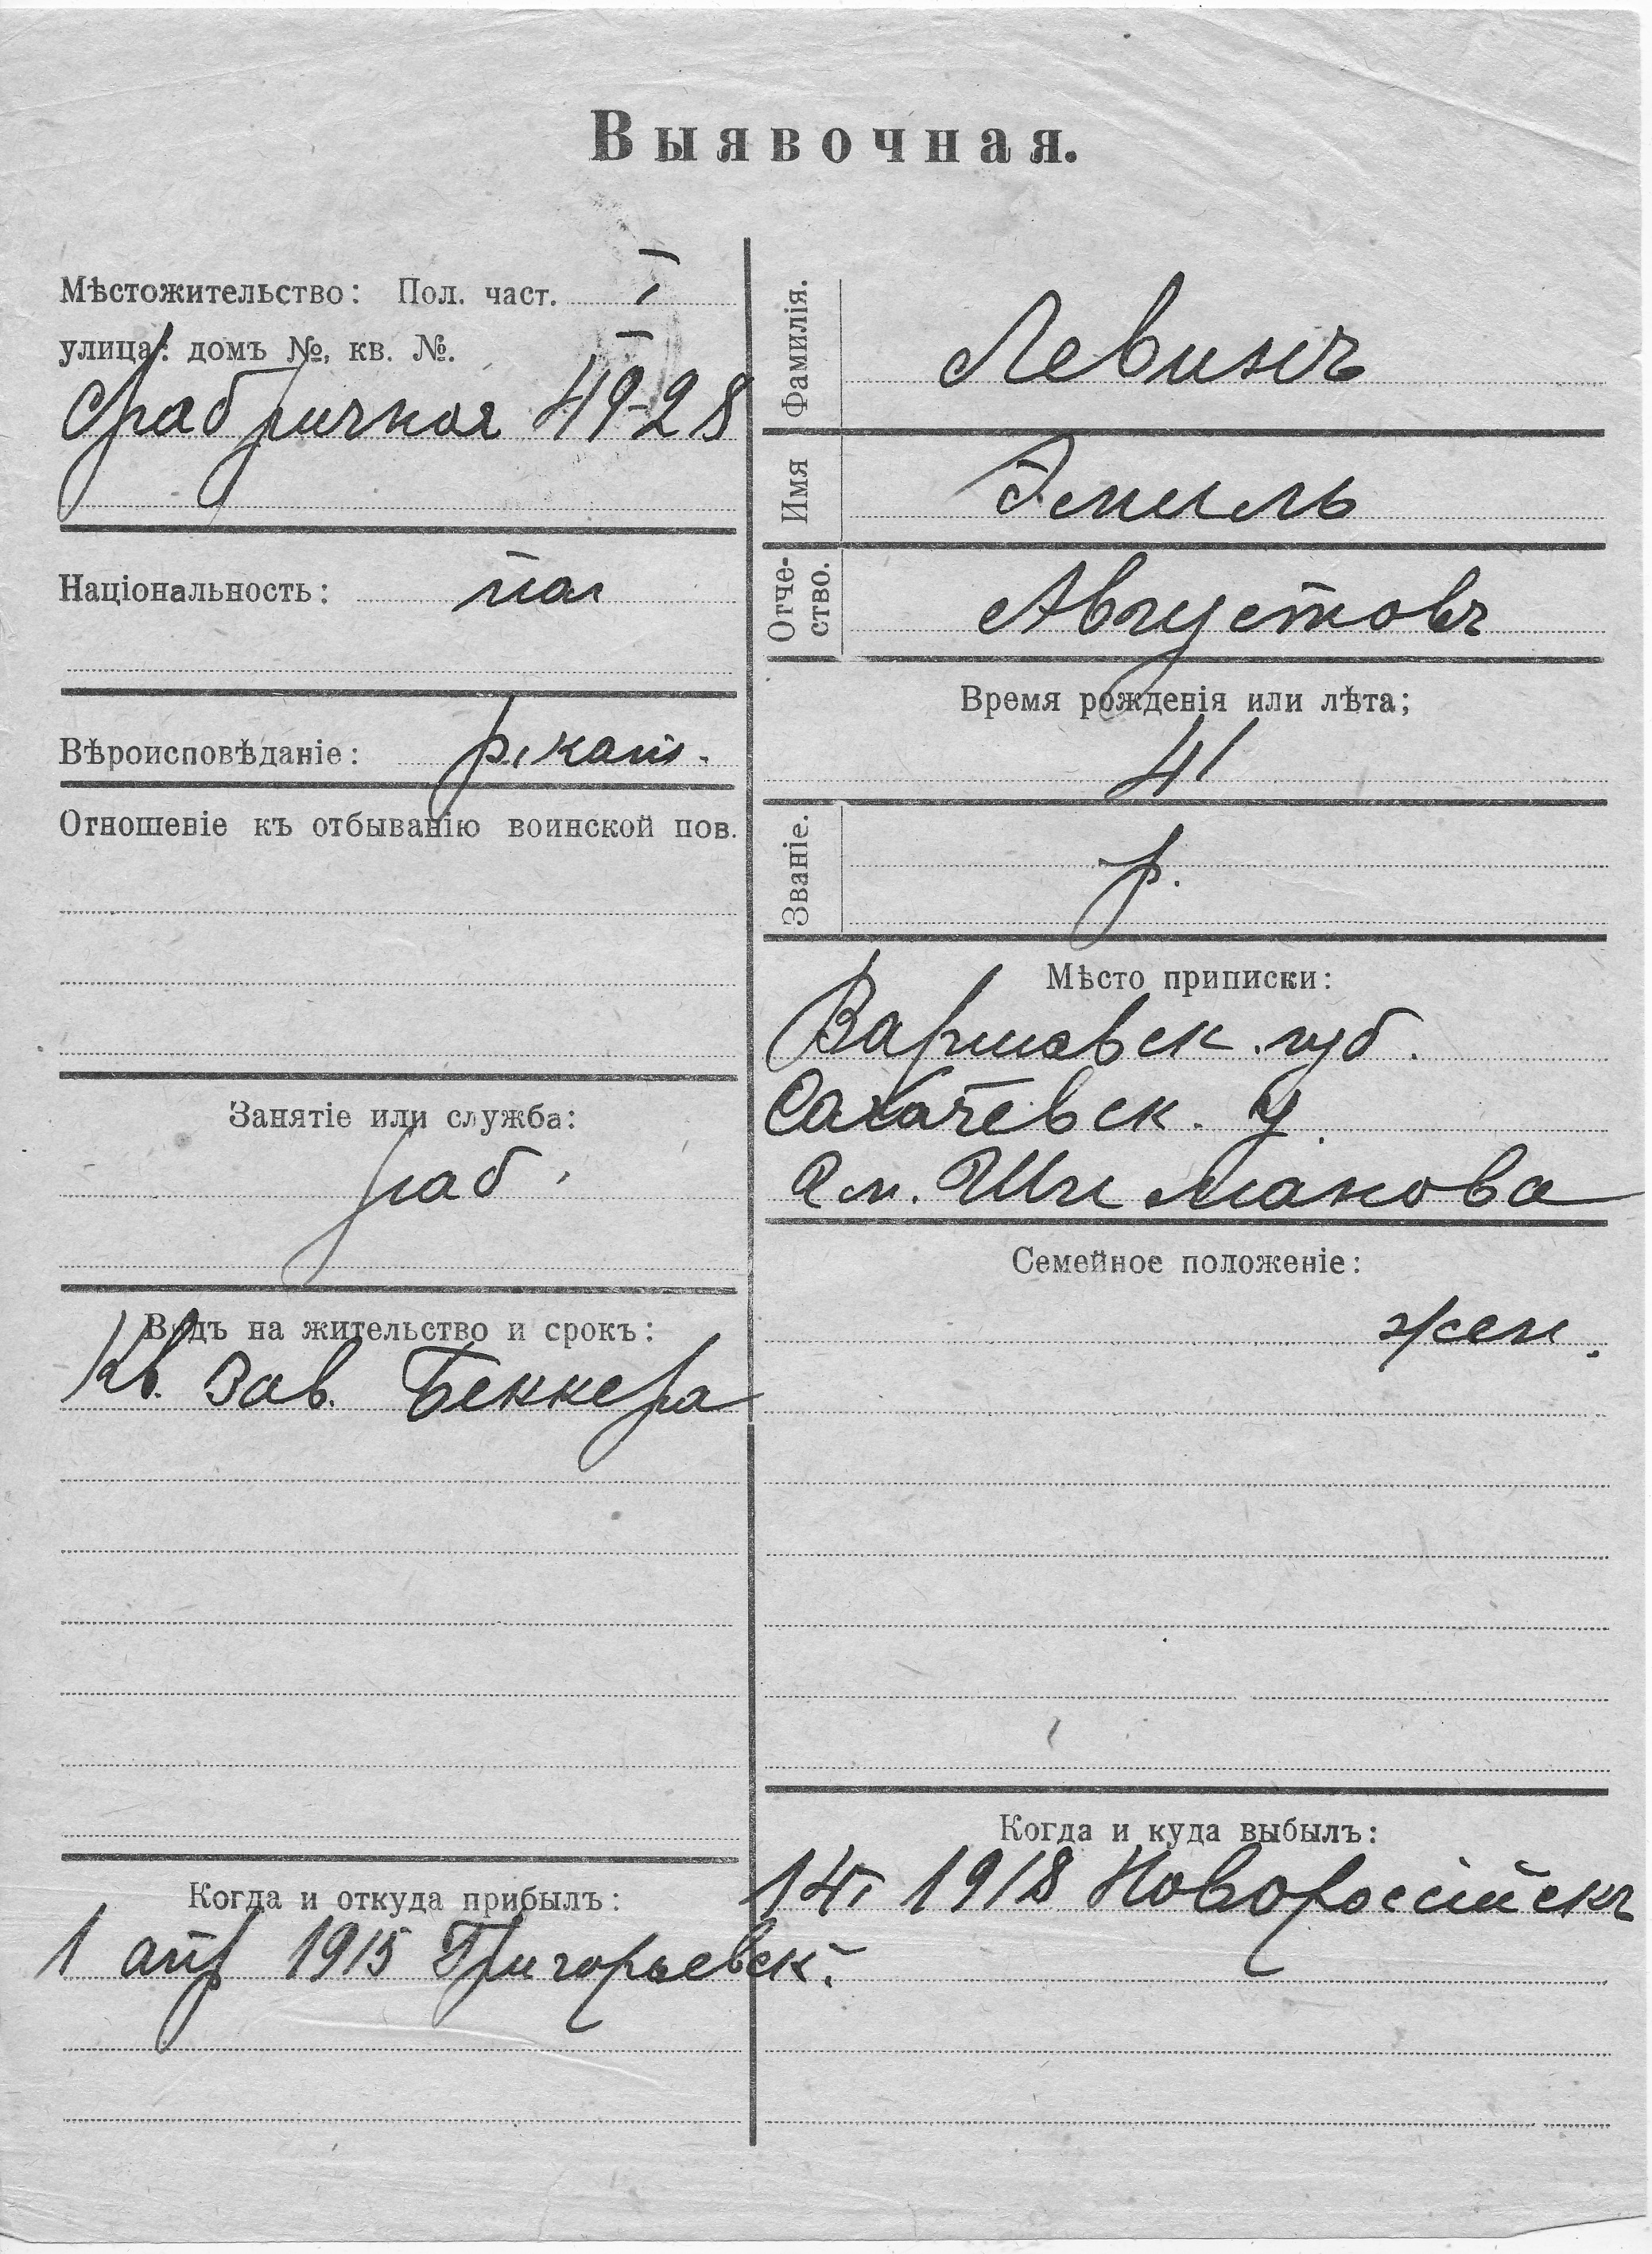 Выявочная.
Мѣстожительство: Пол. част. I
улица: домъ №, кв. №.
Фабричная 49-28
Національность: пол
Вѣроисповѣданіе: р. кат.
Отношеніе къ отбыванію воинской пов.
Занятіе или служба:
раб.
Видъ на жительство и срокъ:
Кв. Зав. Беккера
Когда и откуда прибылъ:
1 апр 1915 Григорьевск.
Фамилія.
Левинъ
Имя
Эмиль
Отче-
ство.
Августовъ
Время рожденія или лѣта;
41
Званіе.
р.
Мѣсто приписки:
Варшавск. губ.
Сахачевск. у.
гм. Шиманова
Семейное положеніе:
жен.
Когда и куда выбылъ:
1918 Новороссійскъ